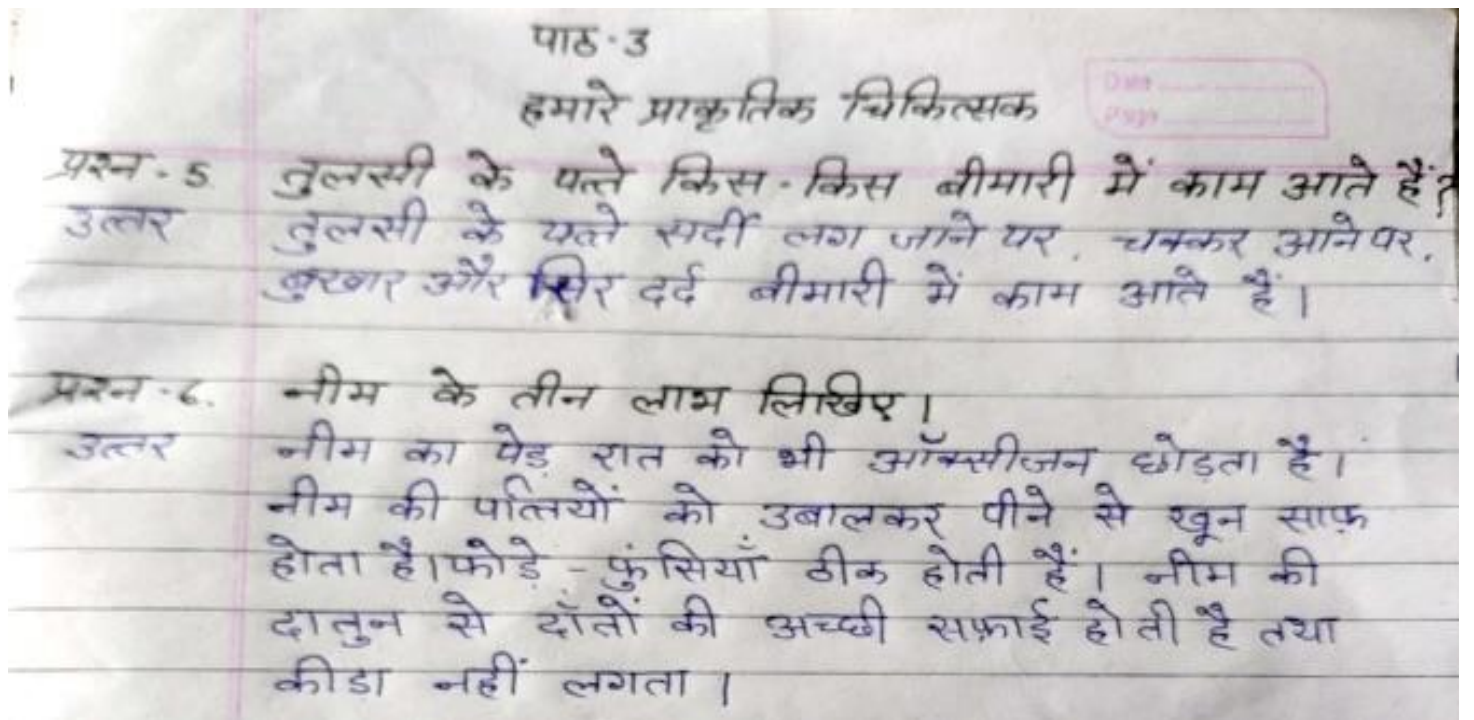 पाठ-3
हमारे प्राकृतिक चिकित्सक
Date
Page
प्रश्न-5 तुलसी के पत्ते किस-किस बीमारी में काम आते हैं?
उत्तर तुलसी के पत्ते सर्दी लग जाने पर, चक्कर आने पर,
बुखार और सिर दर्द बीमारी में काम आते हैं।
प्रश्न-6. नीम के तीन लाभ लिखिए।
उत्तर नीम का पेड़ रात को भी ऑक्सीजन छोड़ता है।
नीम की पत्तियों को उबालकर पीने से खून साफ़
होता है। फोड़े-फुंसियाँ ठीक होती हैं। नीम की
दातुन से दाँतों की अच्छी सफ़ाई होती है तथा
कीडा नहीं लगता।